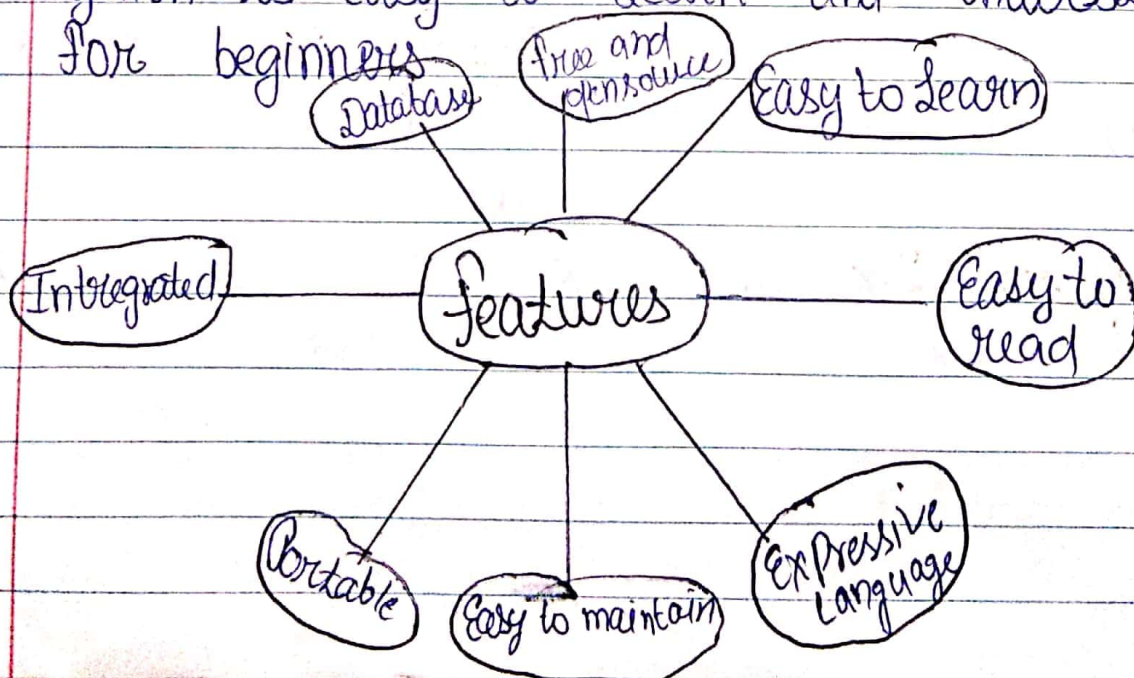 easy to learn and
for beginners
Database
free and
opensource
Easy to Learn
Intregrated
features
Easy to
read
Portable
Easy to maintain
Expressive
Language